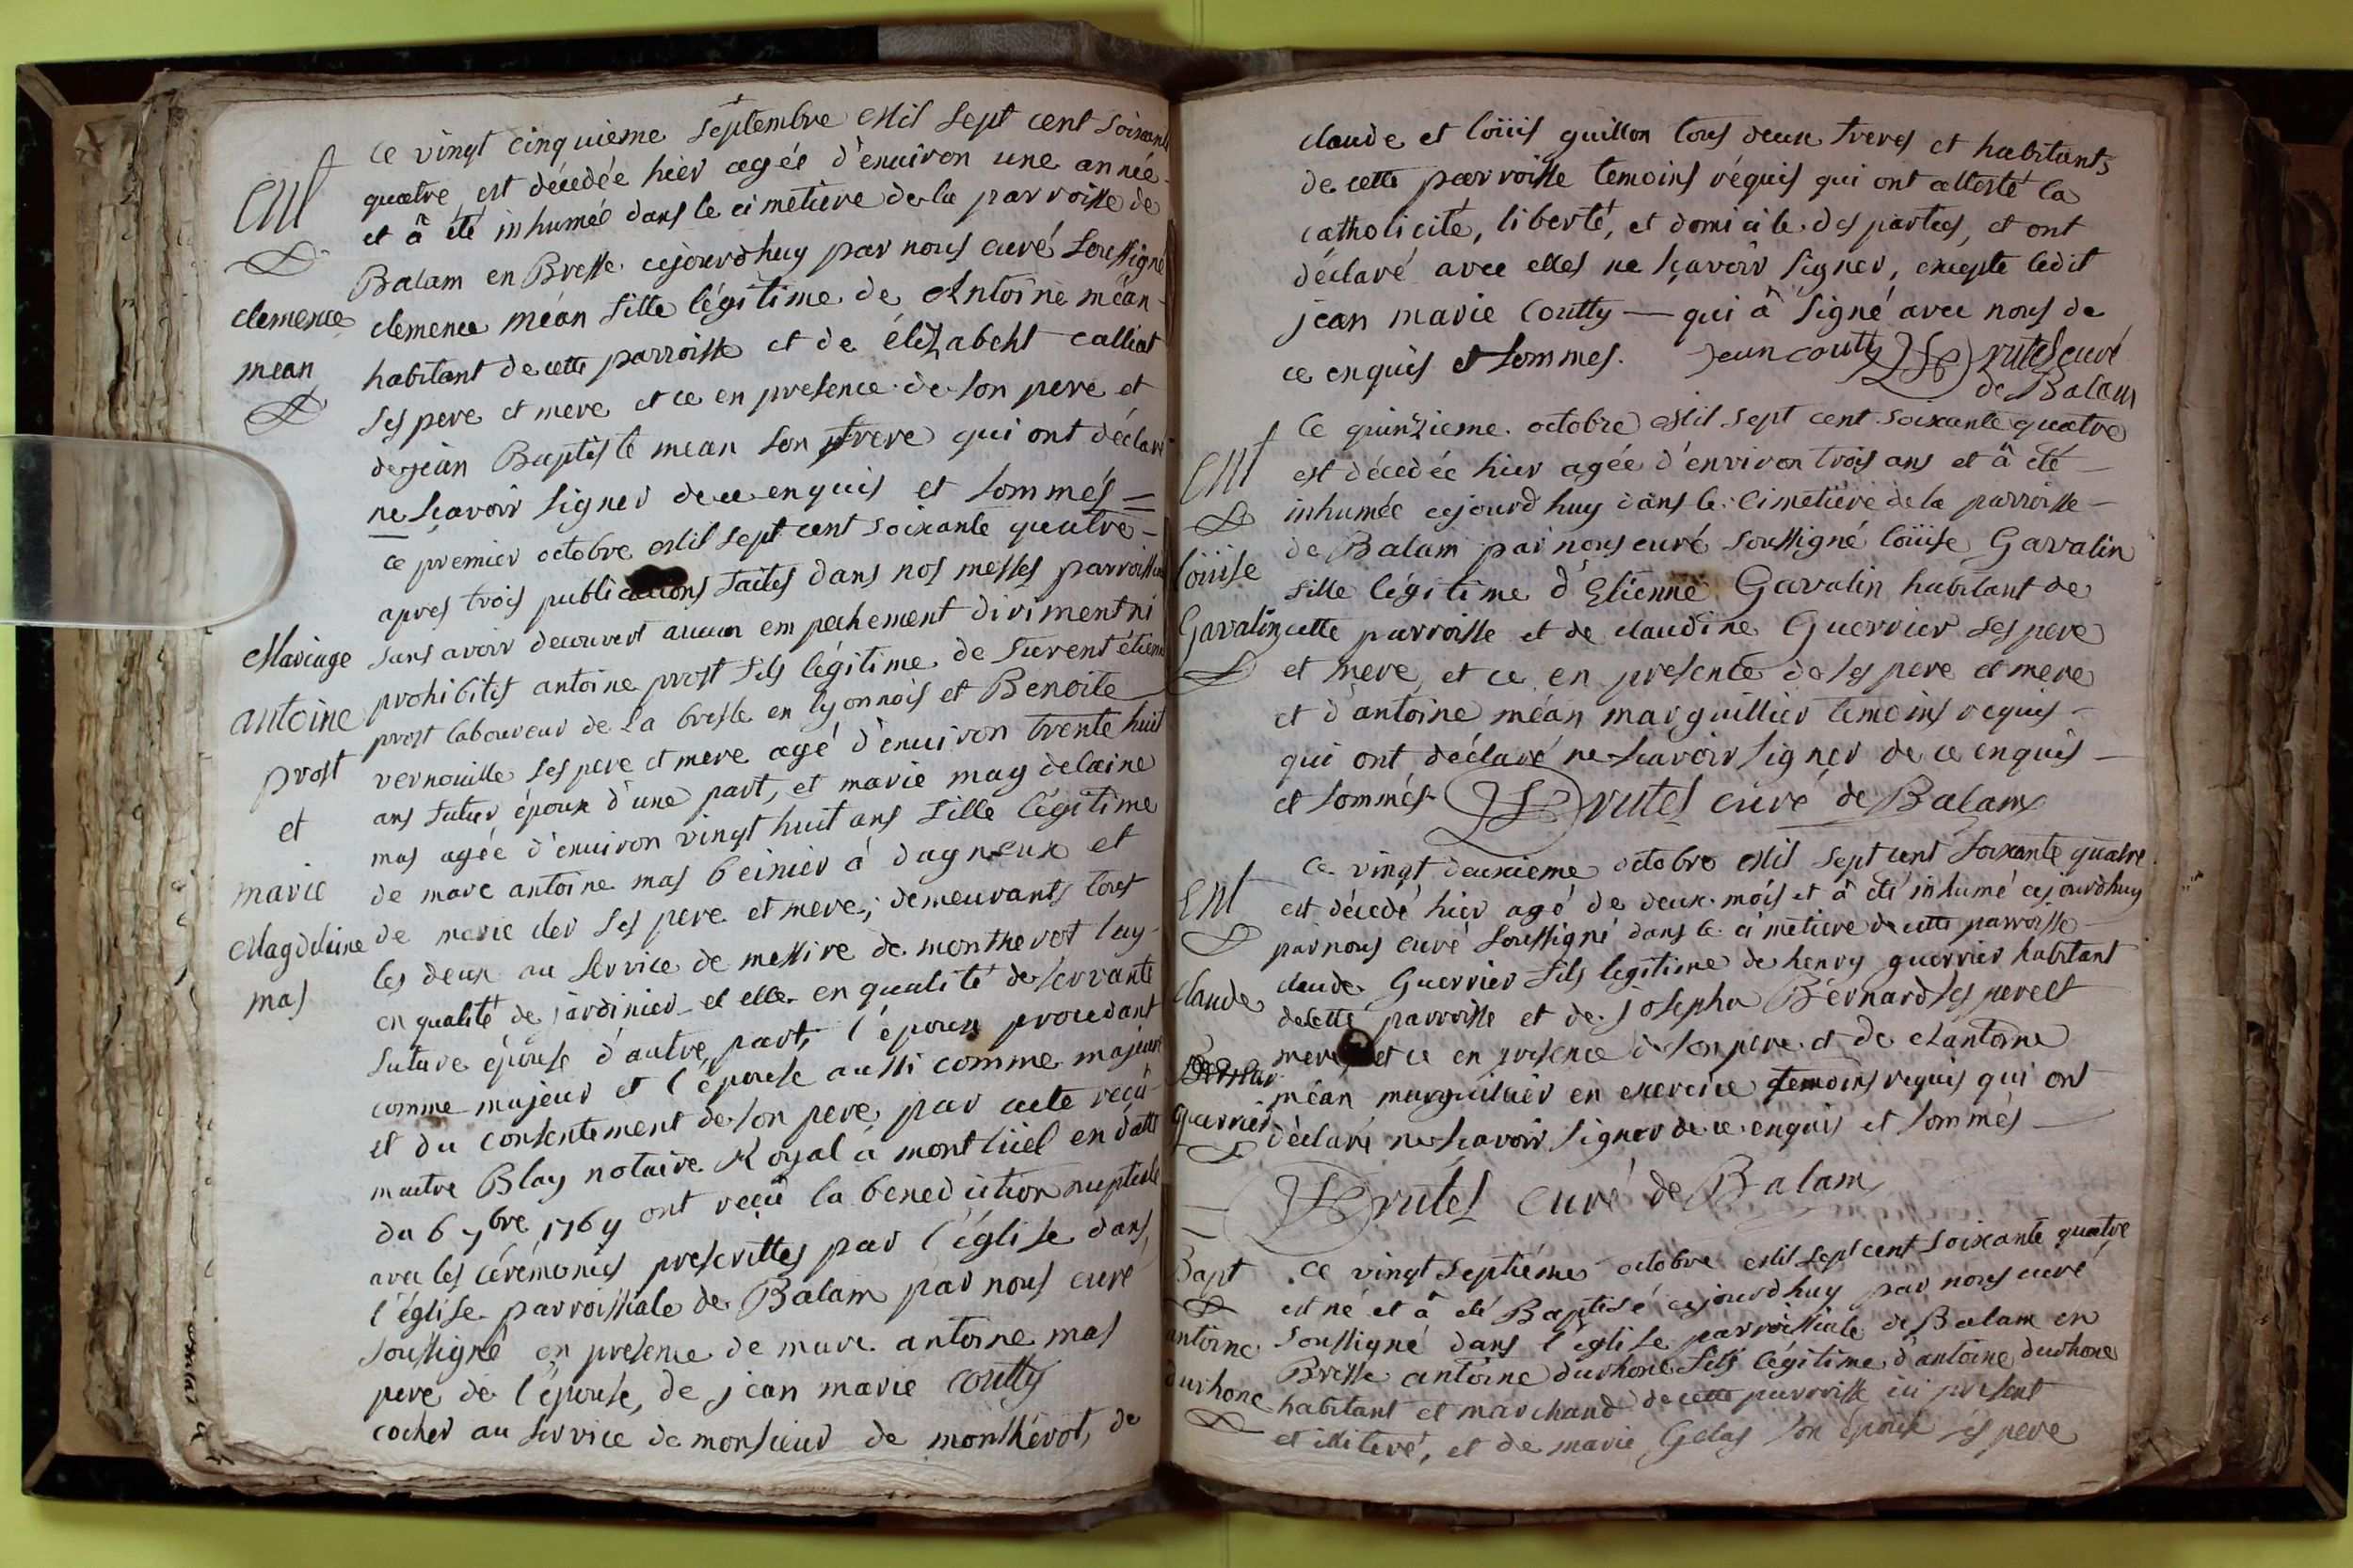 Ent
clemence
mean
ce vingt cinquieme septembre Mil sept cent soixante
quatre est décédée hier agée d'environ une année
et à été inhumée dans le cimetiere de la parroisse de
Balam en Bresse cejourdhuy par nous curé soussigné
clemence méan fille légitime de Antoine méan
habitant de cette parroisse et de élizabeht calliat
ses pere et mere et ce en presence de son pere et
de jean Baptiste mean son frere qui ont déclaré
ne sçavoir signer de ce enquis et sommés =
Mariage
antoine
prost
et
marie
Magdelaine
mas
ce premier octobre Mil sept cent soixante quatre
apres trois publications faites dans nos messes parroissiales
sans avoir decouvert aucun empechement diriment ni
prohibitif antoine prost fils légitime de furent étienne
prost laboureur de la bresle en lyonnois et Benoite
vernouille ses pere et mere agé d'environ trente huit
ans futur époux d'une part, et marie magdelaine
mas agée d'environ vingt huit ans fille légitime
de marc antoine mas à dagneux et
de marie ses pere et mere, demeurants tous
les deux au service de messire de montherot luy
en qualité de jardinier et elle en qualité de servante
future épouse d'autre part, l'époux procedant
comme majeur et l'épouse aussi comme majeure
et du consentement de son pere par acte reçu
maitre Blay notaire Royal à montluel en datte
du 6 7bre 1764 ont reçu la benediction nuptiale
avec les cérémonies prescrittes par l'église dans
l'église parroissiale de Balam par nous curé
soussigné en presence de marc antoine mas
pere de l'épouse, de jean marie coutty
cocher au service de monsieur de monthérot, de
claude et loüis guillon tous deux freres et habitants
de cette parroisse temoins réquis qui ont attesté la
catholicité, liberté, et domicile des parties, et ont
déclaré avec elles ne sçavoir signer, excepté ledit
jean marie coutty — qui à signé avec nous de
ce enquis et sommes. Jean coutty Drutel curé
de Balam
Ent
loüise
Gavalin
ce quinzieme octobre Mil sept cent soixante quatre
est décédée hier agée d'environ trois ans et à été
inhumée cejourdhuy dans le cimetiere de la parroisse
de Balam par nous curé soussigné loüise Gavalin
fille légitime d'Etienne Gavalin habitant de
cette parroisse et de claudine Guerrier ses pere
et mere, et ce en presence de ses pere et mere
et d'antoine méan marguillier temoins requis
qui ont déclaré ne scavoir signer de ce enquis
et sommés Drutel curé de Balam
Ent
claude
guerrier
ce vingt deuxieme octobre Mil sept cent soixante quatre
est décedé hier agé de deux mois et à été inhumé cejourdhuy
par nous curé soussigné dans le cimetiere de cette parroisse
claude Guerrier fils legitime de henry guerrier habitant
de cette parroisse et de josepha Bernard ses pere et
mere et ce en presence de son pere et de antoine
méan marguillier en exercice temoins requis qui ont
déclaré ne scavoir signer de ce enquis et sommés
Drutel curé de Balam
Bapt
antoine
durhone
ce vingt septiéme octobre Mil sept cent soixante quatre
est né et à été Baptisé cejourdhuy par nous curé
soussigné dans l'église parroissiale de Balam en
Bresse antoine durhone fils légitime d'antoine durhone
habitant et marchand de cette parroisse ici present
et illiteré, et de marie Gelas son épouse ses pere